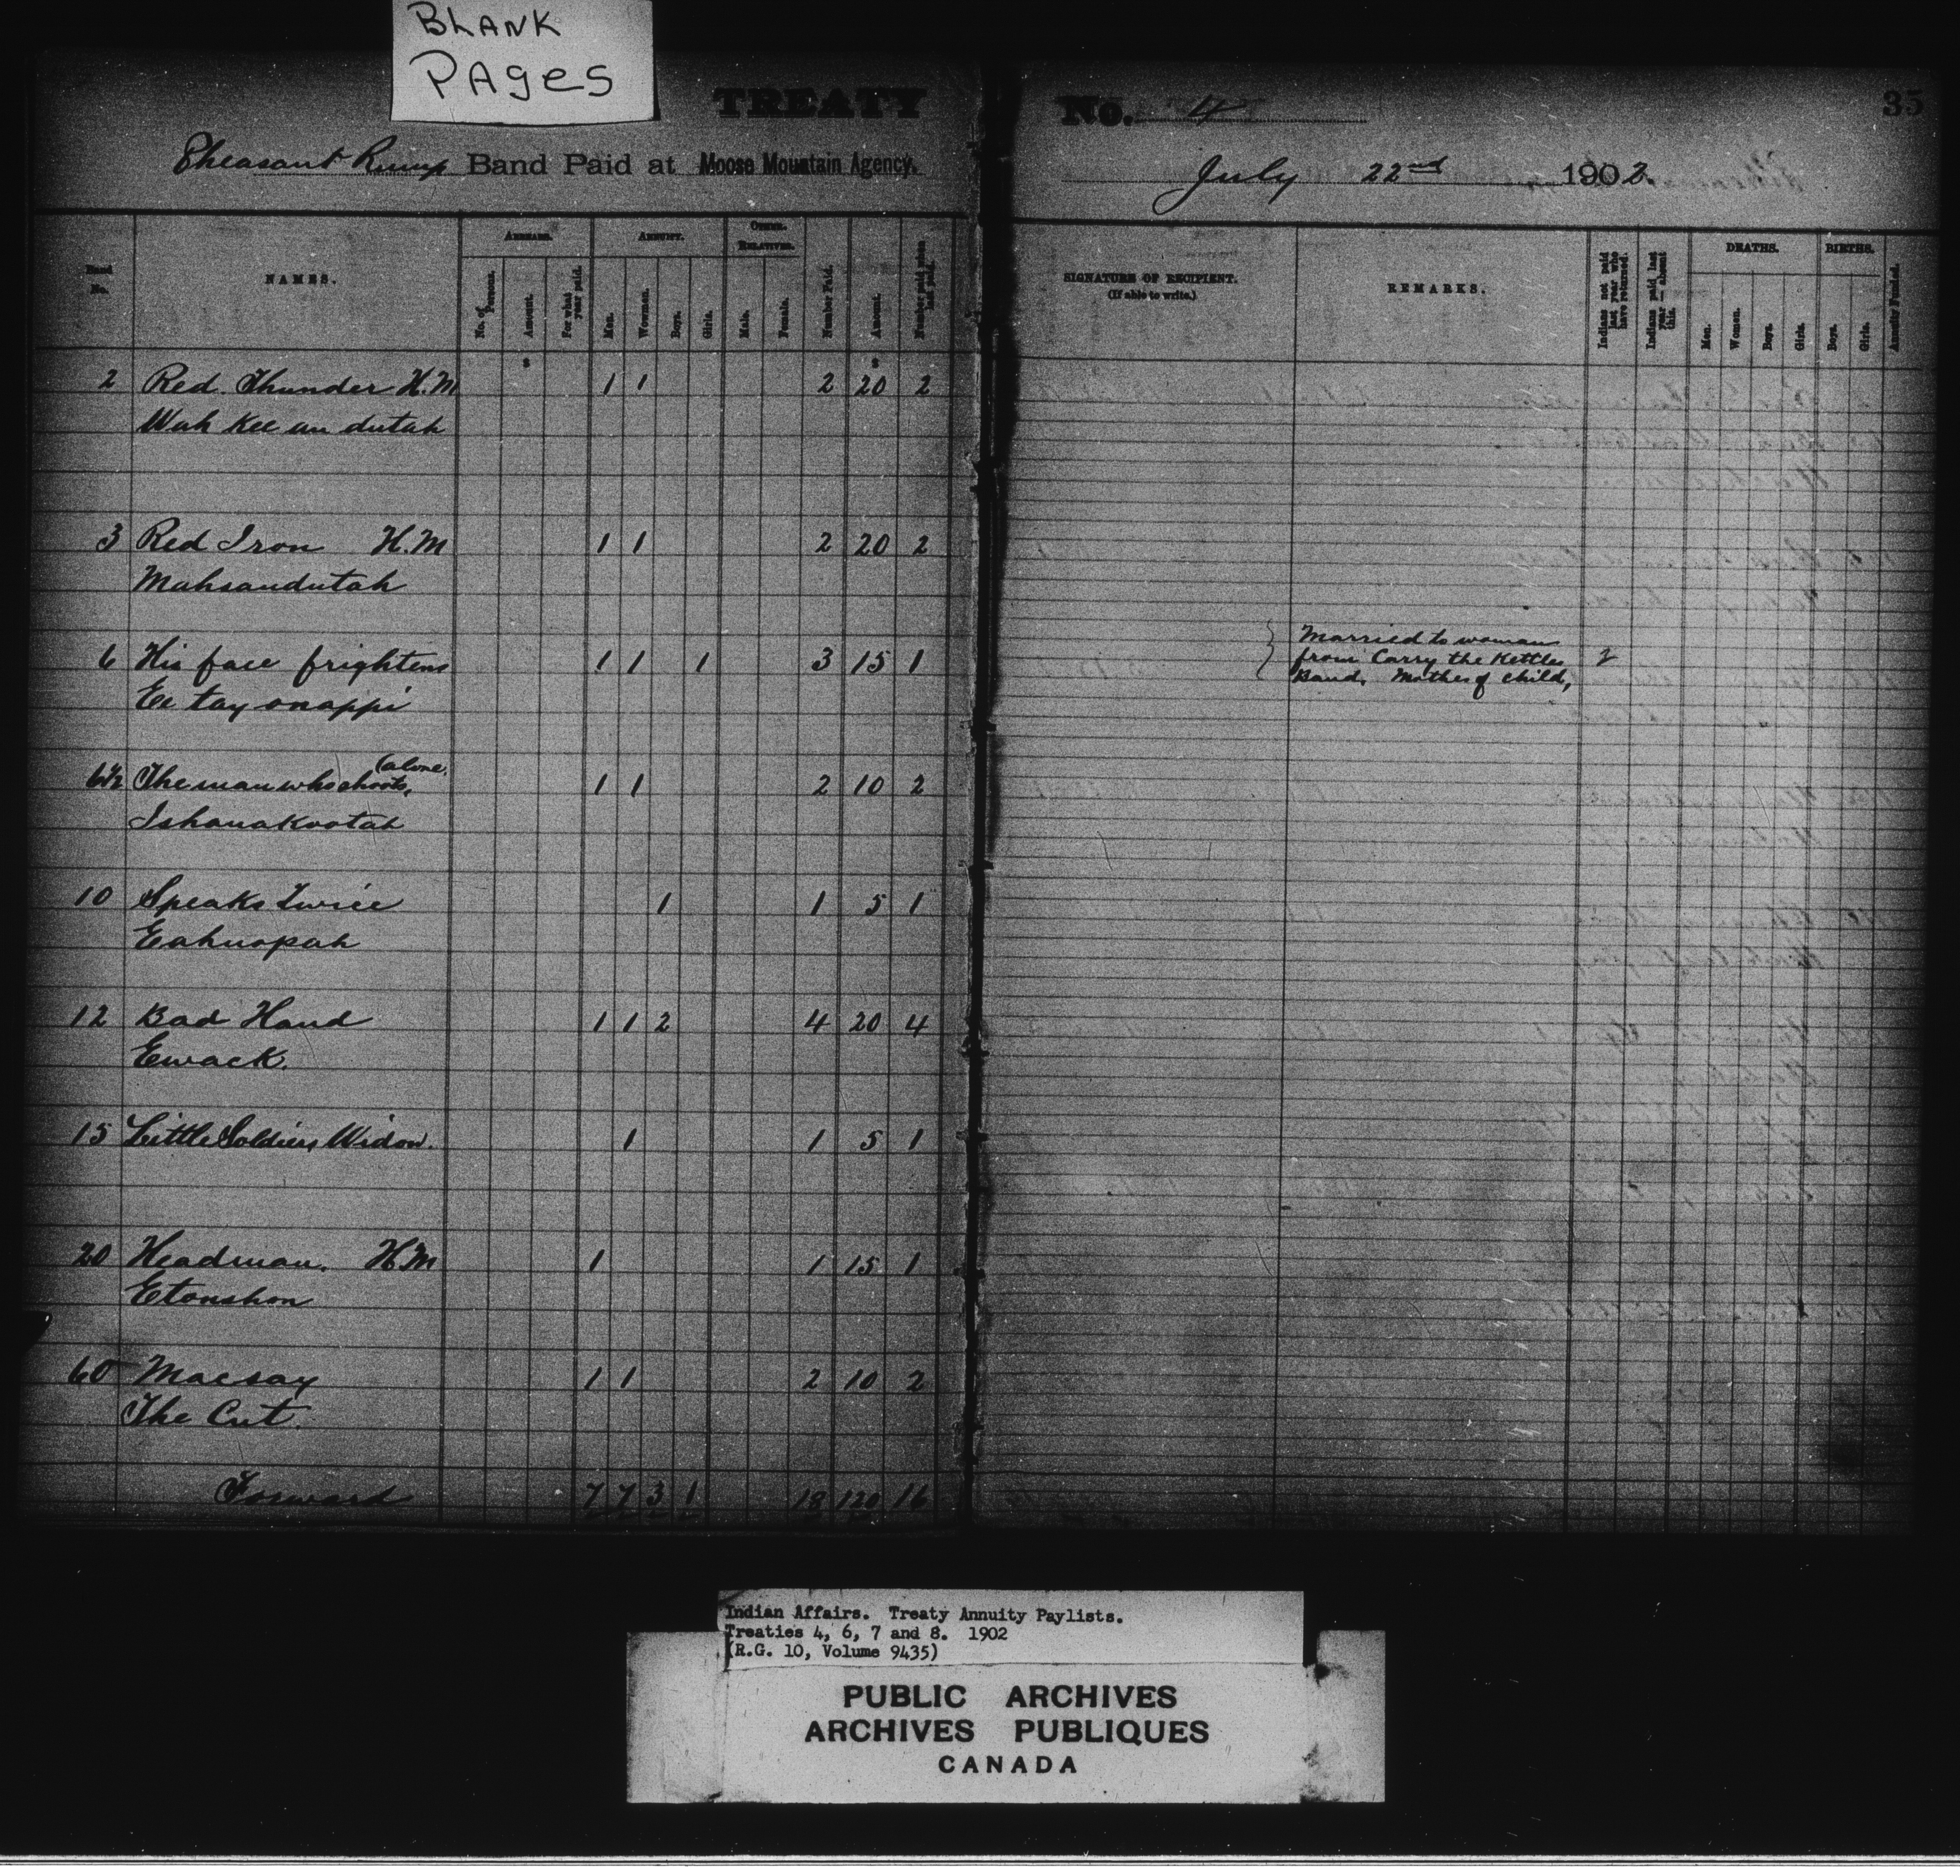 BLANK
PAges
TREATY No. 4
35
Pheasant Rump Band Paid at Moose Mountain Agency. July 22nd 1902
Band No.
NAMES.
ARREARS.
No. of Persons.
Amount.
For what year paid.
ANNUITY.
Men.
Women.
Boys.
Girls.
OTHER RELATIVES.
Male.
Female.
Number Paid.
Amount.
Number paid when last paid.
SIGNATURE OF RECIPIENT.
(If able to write.)
REMARKS.
Indians not paid last year who have returned.
Indians paid last year — absent this.
DEATHS.
Men.
Women.
Boys.
Girls.
BIRTHS.
Boys.
Girls.
Annuity Funded.
$ $
2 Red Thunder H.M 1 1 2 20 2
Wah kee an dutah
3 Red Iron H.M 1 1 2 20 2
Mahsandutah
6 His face frightens 1 1 1 3 15 1
Ee tay onappi
Married to woman
from Carry the Kettles 2
Band. Mother of child,
6½ The man who shoots, (alone. 1 1 2 10 2
Ishanakootah
10 Speaks Twice 1 1 5 1
Eahnopah
12 Bad Hand 1 1 2 4 20 4
Ewack.
15 Little Soldiers Widow. 1 1 5 1
20 Headman. H.M 1 1 15 1
Etonshon
60 Macsay 1 1 2 10 2
The Cut.
Forward 7 7 3 1 18 120 16
Indian Affairs. Treaty Annuity Paylists.
Treaties 4, 6, 7 and 8. 1902
(R.G. 10, Volume 9435)
PUBLIC ARCHIVES
ARCHIVES PUBLIQUES
CANADA